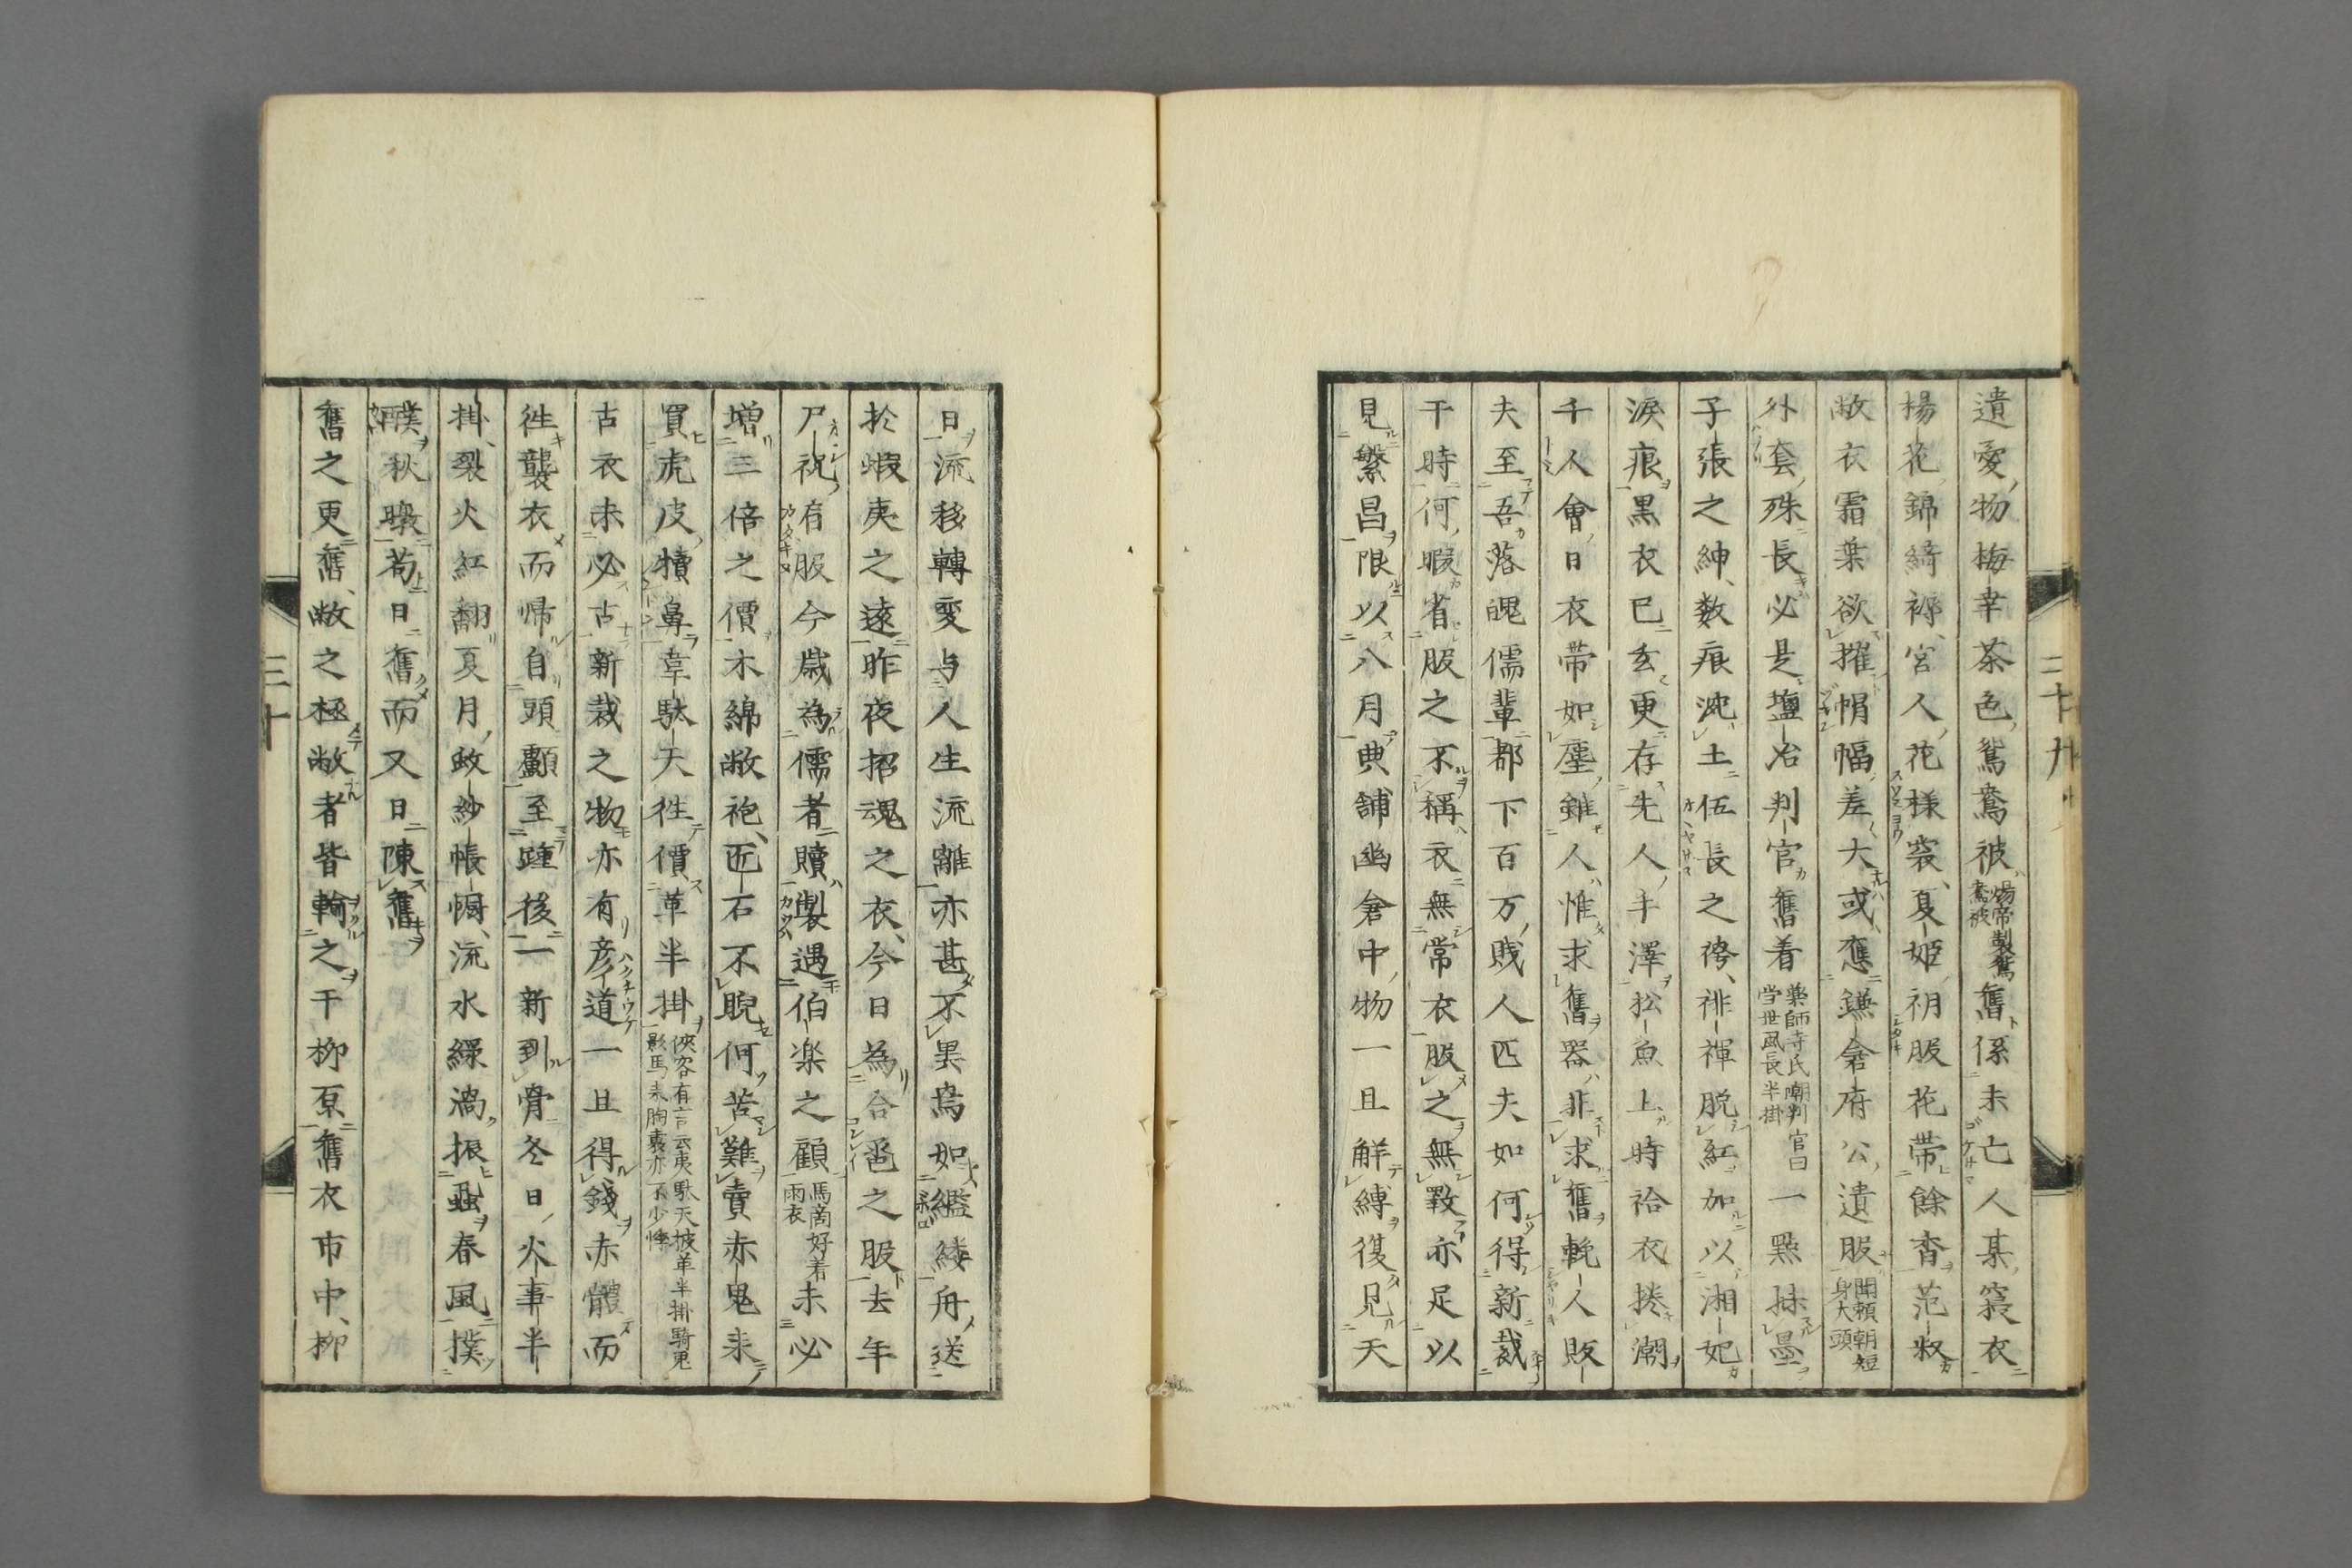 遺愛物梅幸茶色鴛鴦被煬帝製鴛鴦被舊係未亡人某裂衣
楊花錦綺褥宮人花様裳夏姫衵服花帯餘香范叔
敝衣霜葉欲擢帽幅差大或應鎌倉府公遺服聞頼朝短身大頭
外套殊長必是塩冶判官舊着薬師寺氏嘲判官曰当世風長半掛一點抹墨
子張之紳数痕沈土伍長之袴褌脱紅如以湘妃
涙痕黒衣已玄更存先人手澤松魚上時袷衣捲潮
千人會日衣帯如塵雖人惟求舊器非求舊輓人販
夫至吾落魄儒輩都下百万賤人匹夫如何得新裁
干時何暇省服之不稱衣無常衣服之無斁亦足以
見繁昌限以八月典舗幽倉中物一旦解縛復見天
二十九
日流移轉変与人生流離亦甚不異烏如繿縷舟送
於蝦夷之遠昨夜招魂之衣今日為合巹之服去年
尸祝有服今歳為儒者贖製遇伯楽之顧馬商好着雨衣未必
増三倍之價木綿敝袍匹石不睨何苦難賣赤鬼来
買虎皮犢鼻韋駄天徃價革半掛侠客有言云夷駄天披革半掛騎鬼影馬来胸裏亦不少悸
古衣未必古新裁之物亦有彦道一旦得錢赤體而
徃襲衣而帰自頭顱至踵後一新到骨冬日火事半
掛裂火紅翻夏月蚊紗帳㡡流水緑漪振蝨春風撲
醭秋曝苟日舊而又日陳舊
舊之更舊敝之極敝者皆輸之干柳原舊衣市中柳
三十